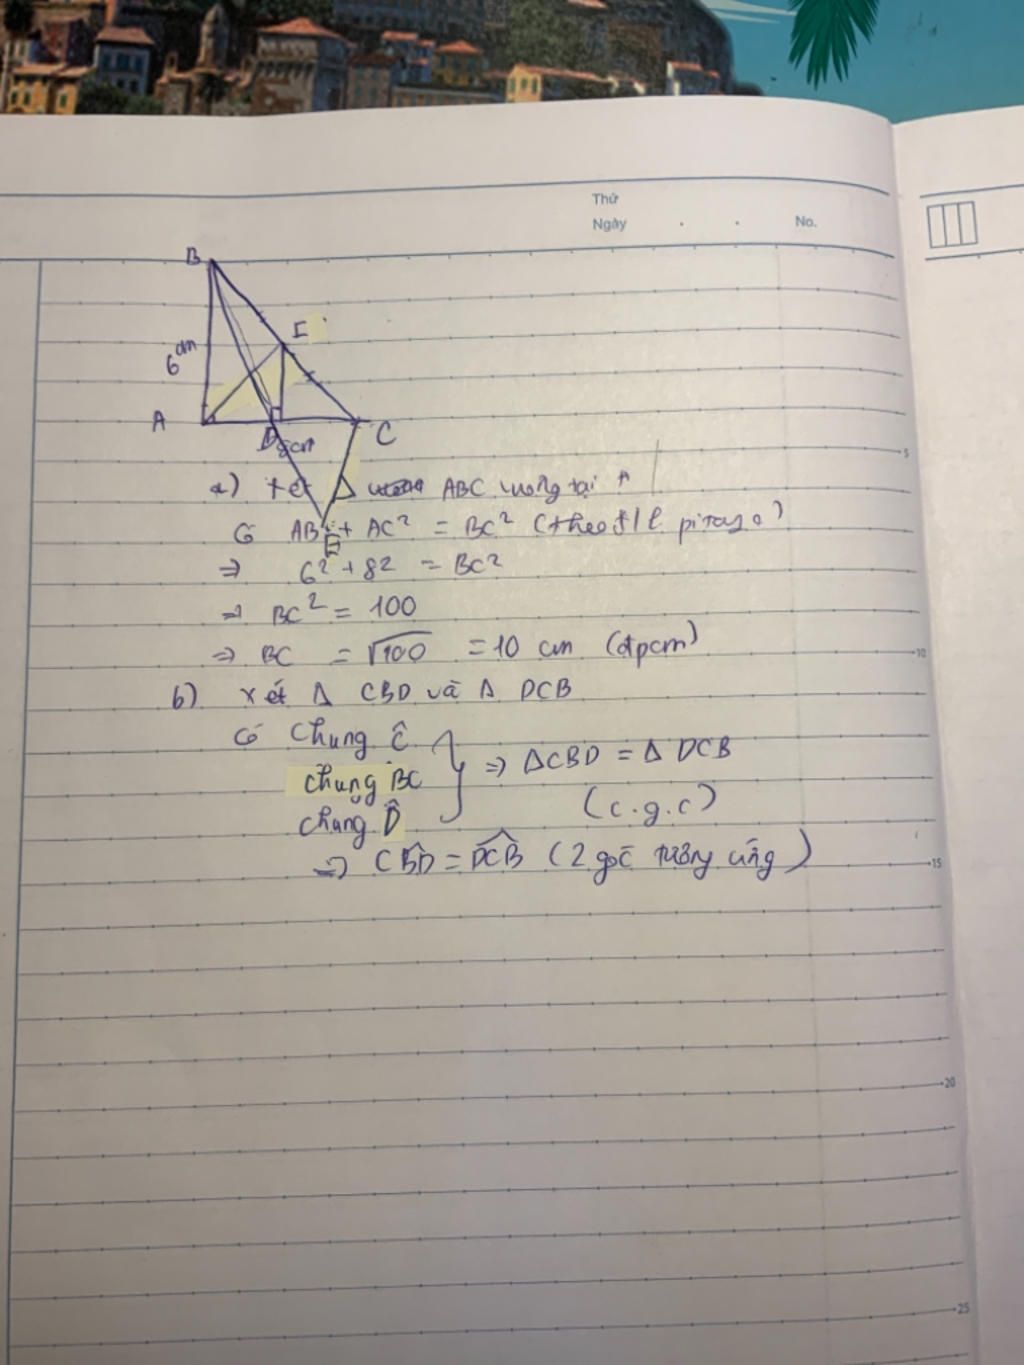 Thứ
Ngày . . No.
B
I
6 cm
A
D
8cm
C
E
a) xét Δ ABC vuông tại A
Có AB² + AC² = BC² (theo đ/l pitago)
⇒ 6² + 8² = BC²
⇒ BC² = 100
⇒ BC = √100 = 10 cm (đpcm)
b) xét Δ CBD và Δ DCB
Có chung Ĉ
chung BC ⇒ ΔCBD = Δ DCB
chung D̂ (c.g.c)
⇒ CB̂D = DĈB (2 góc tương ứng)
5
10
15
20
25